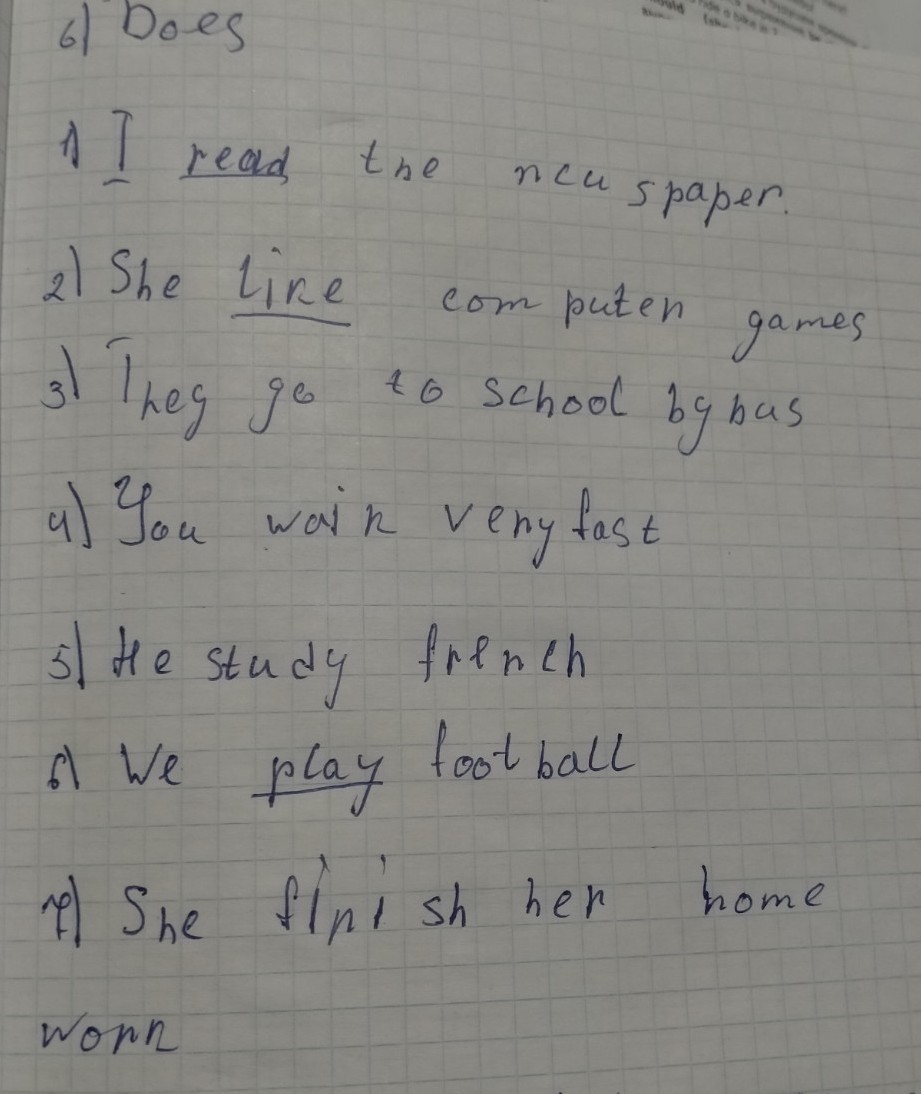 6) Does
1) I read the newspaper.
2) She like computer games
3) They go to school by bus
4) You walk very fast
5) He study french
6) We play football
7) She finish her home
work